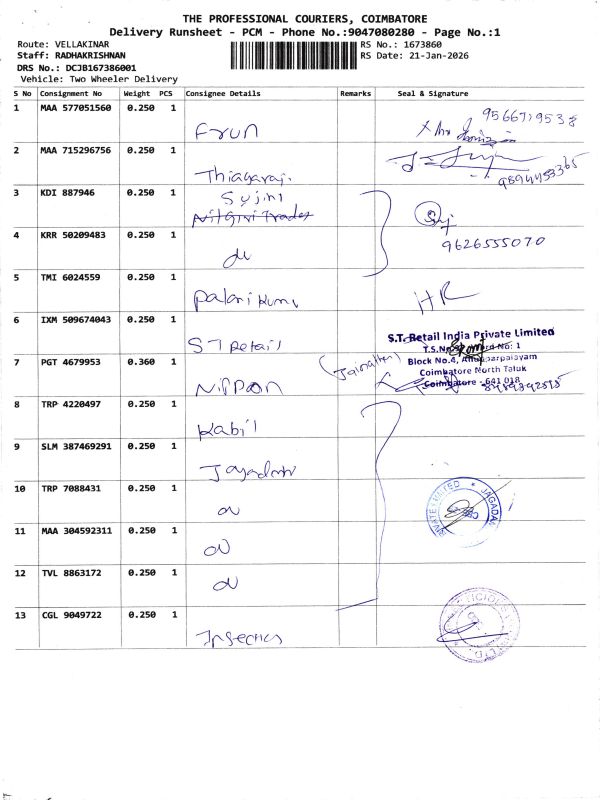 THE PROFESSIONAL COURIERS, COIMBATORE
Delivery Runsheet - PCM - Phone No.:9047080280 - Page No.:1
Route: VELLAKINAR
Staff: RADHAKRISHNAN
DRS No.: DCJB167386001
Vehicle: Two Wheeler Delivery
RS No.: 1673860
RS Date: 21-Jan-2026
S No Consignment No Weight PCS Consignee Details Remarks Seal & Signature
1 MAA 577051560 0.250 1
2 MAA 715296756 0.250 1 Thiyagaraj.
3 KDI 887946 0.250 1 Sujini
Nilgiri Trades
4 KRR 50209483 0.250 1 9626555070
5 TMI 6024559 0.250 1 Palani kumar HR
6 IXM 509674043 0.250 1 ST Retail
S.T. Retail India Private Limited
Block No.4,
Coimbatore North Taluk
Coimbatore - 641 018
7 PGT 4679953 0.360 1 NIPPON
8 TRP 4220497 0.250 1 Kabil
9 SLM 387469291 0.250 1
10 TRP 7088431 0.250 1
11 MAA 304592311 0.250 1
12 TVL 8863172 0.250 1
13 CGL 9049722 0.250 1